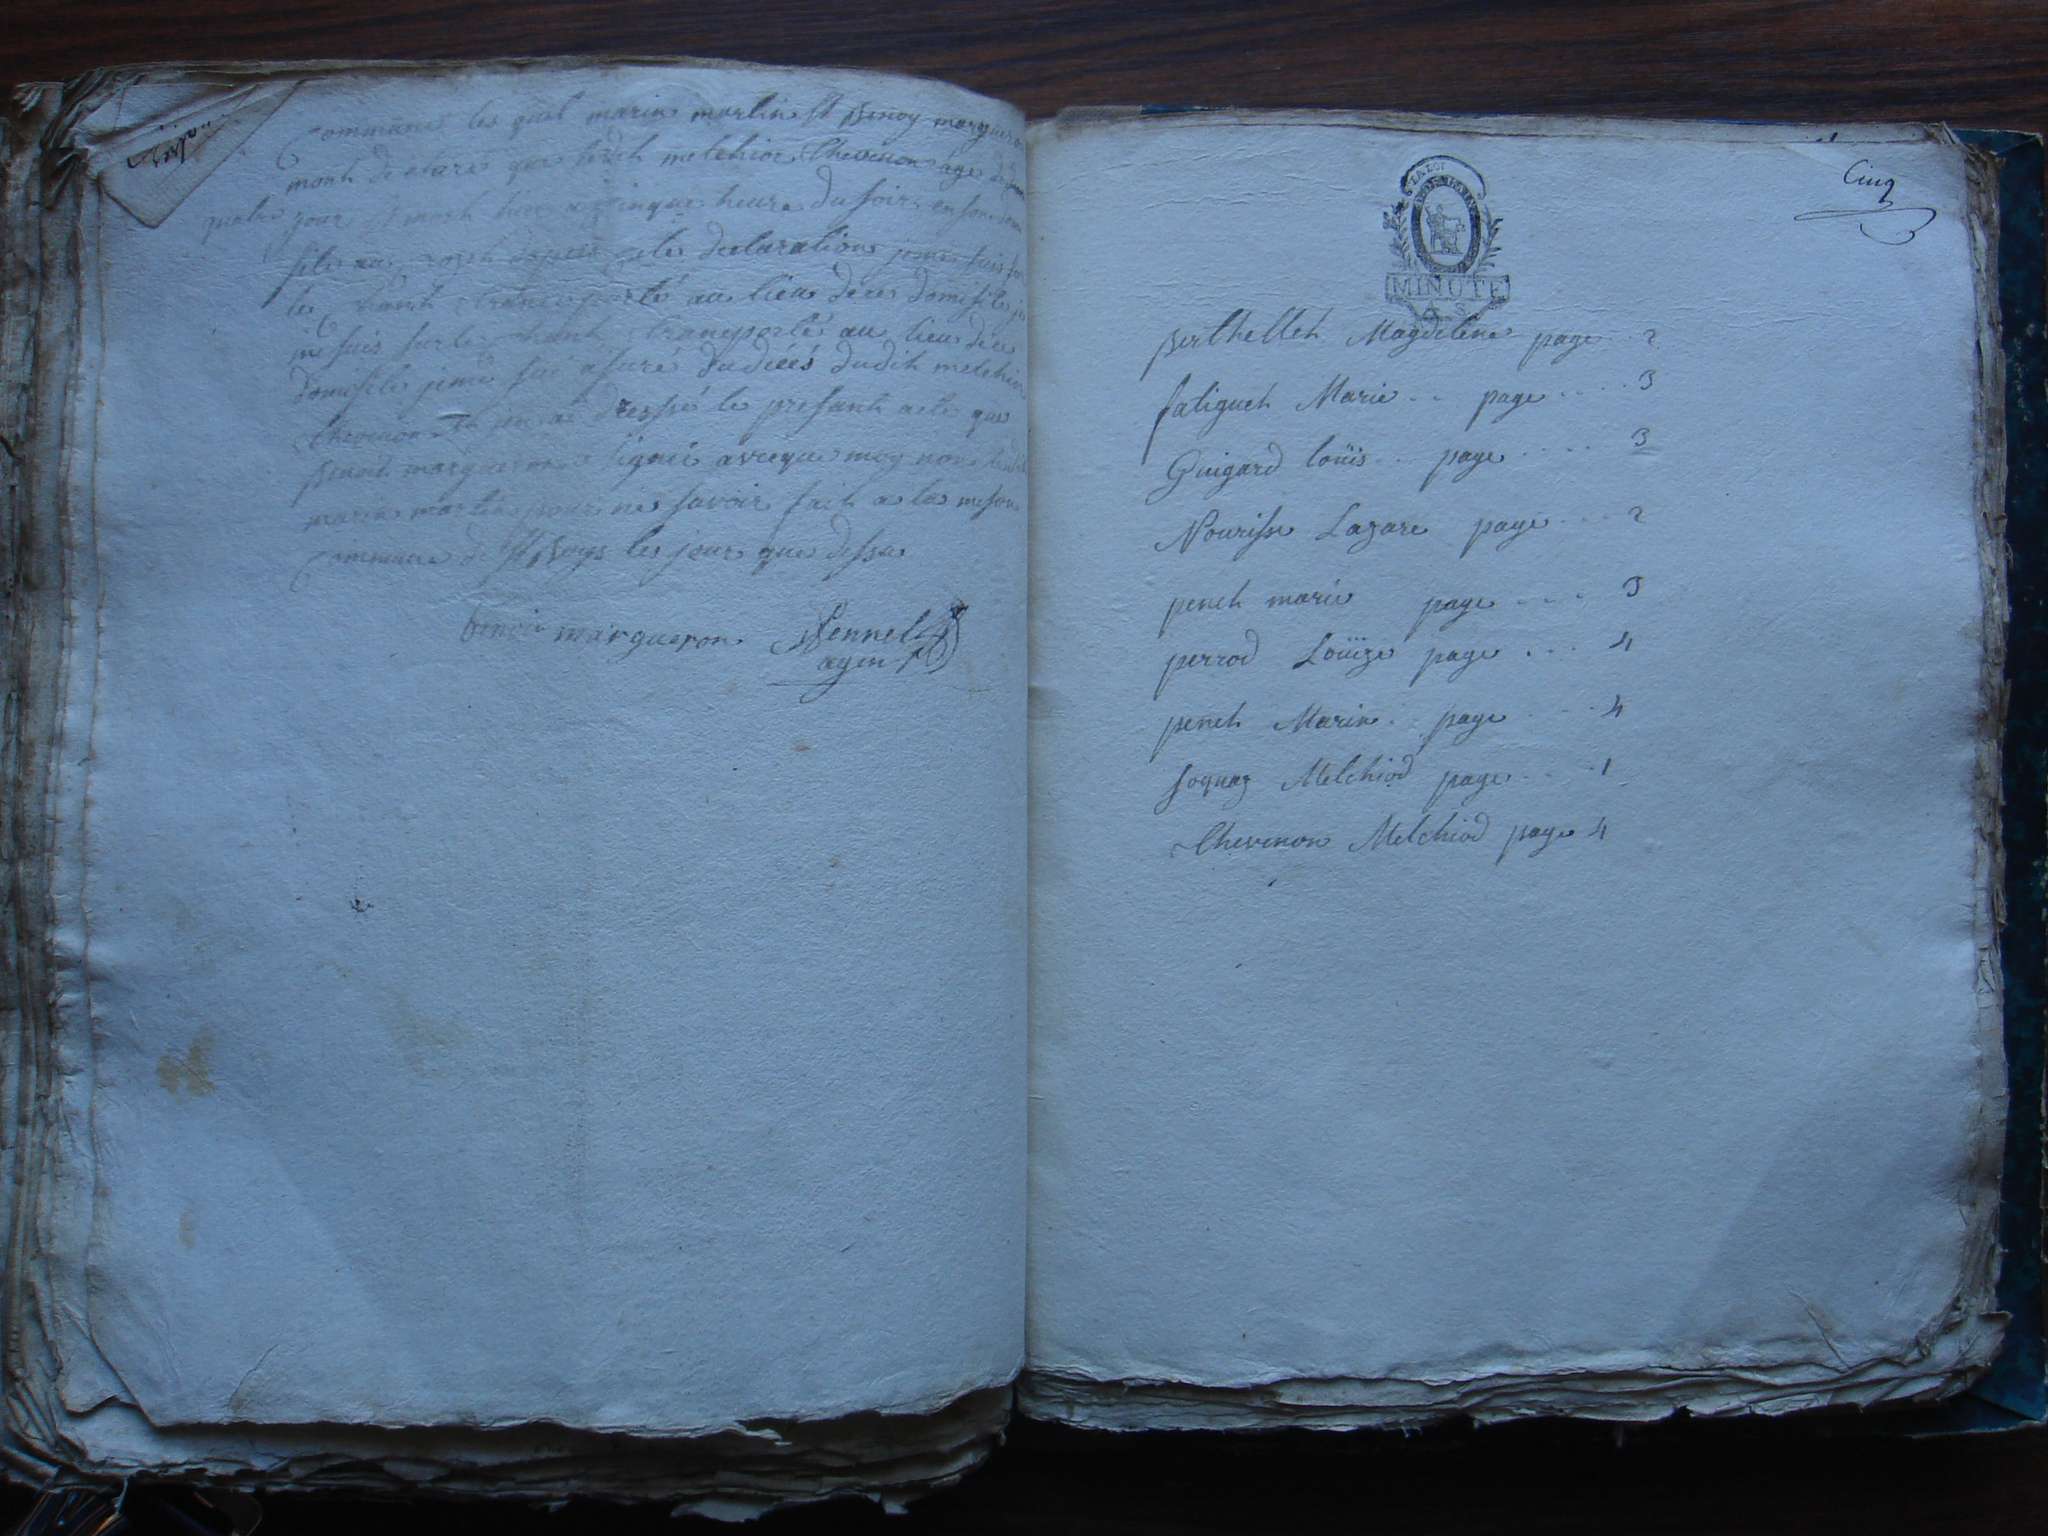 Commune les quel marin martin et Benoy margueron
mont declaré que ledit melchior Chevenon age de
quatre jour et mort hier a cinque heure du soir en son domi
sile au dapres cete declaration je me suis sur
le chant transporté au lieu de ces domisile je
me suis sur le chant transporté au lieu de ce
domisile je me sui asuré du décés dudit melchior
Chevenon et jen ai dressé le presant acte que
Benoit margueron signé aveque moy non ledit
marin martin pour ne savoir fait a la meson
Commune d les jour que dessu
benoit margueron
agent
Cinq
LA LOI
MINUTE
Berthellet Magdelene page 2
faliguet Marie .. page .... 3
Guigard Loüis .. page .... 3
Nourisse Lazare page ... 2
penet marie page .... 3
perrod Loüize page ... 4
penet Marin .. page ... 4
soquaz Melchiod page ... 1
Chevenon Melchiod page 4